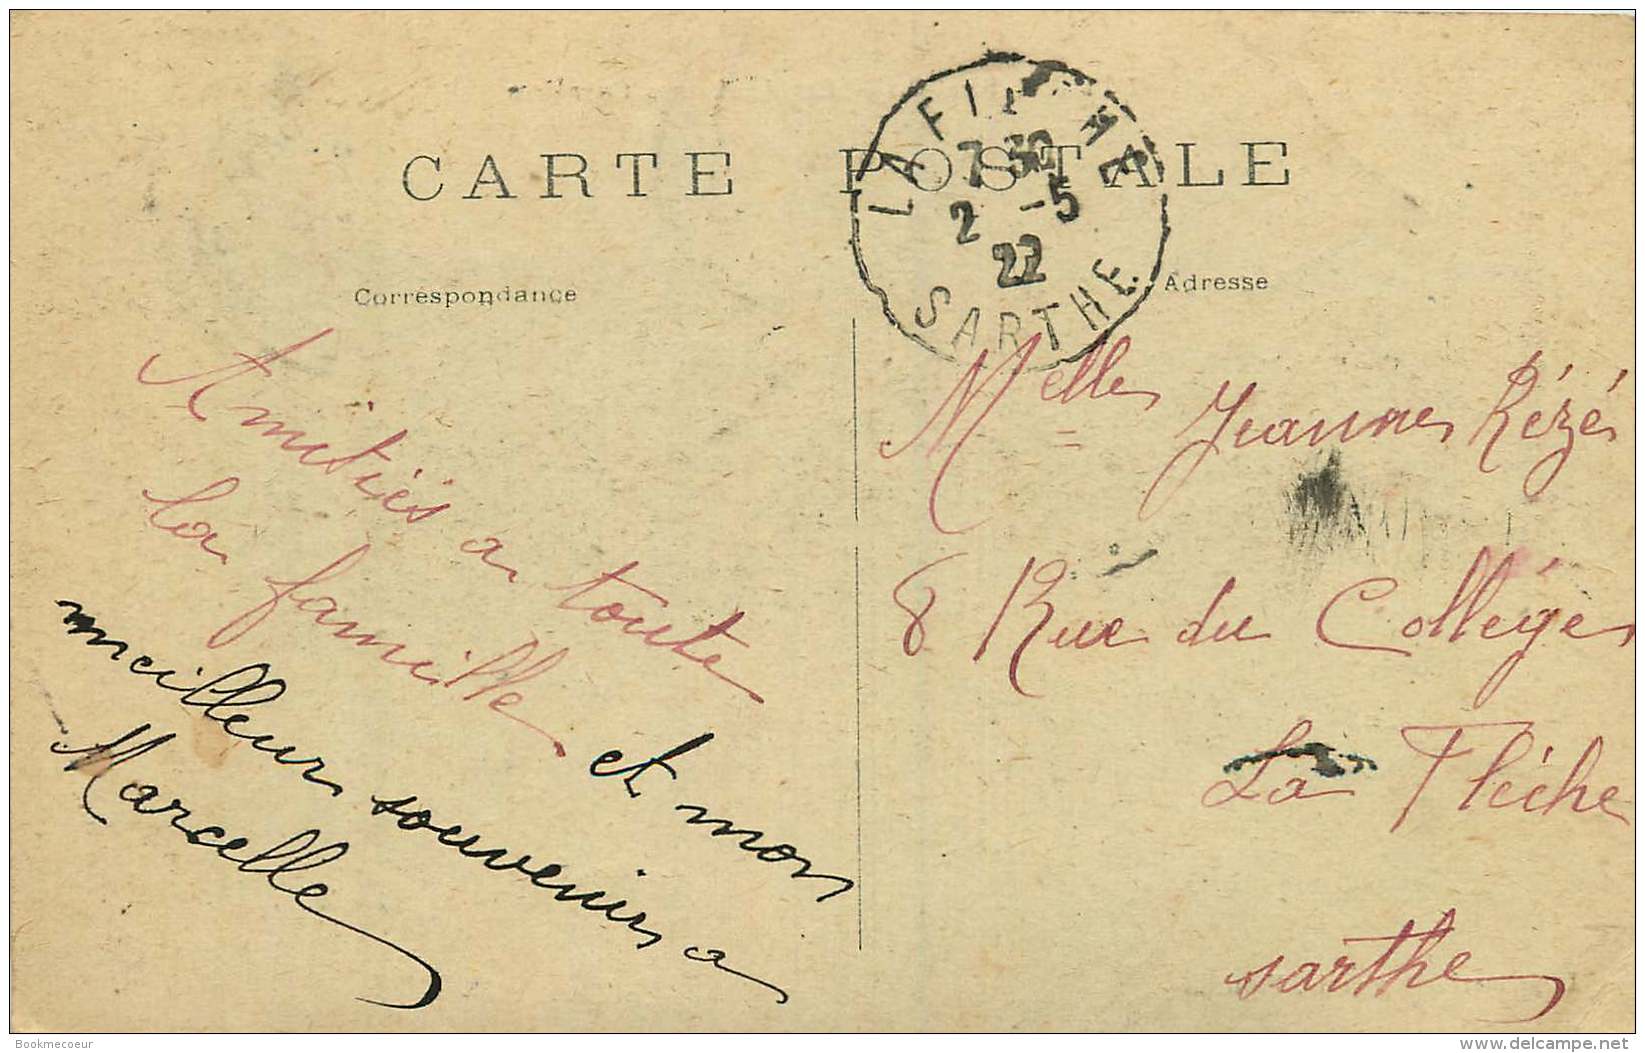 CARTE POSTALE
LA FLÈCHE
7 30
2 -5
22
SARTHE
Correspondance
Adresse
Amitiés a toute
la famille et mon
meilleur souvenir a
Marcelle
Melle Jeanne Rézé
8 Rue du Collège
La Flèche
sarthe
Bookmecoeur
delcampe.net